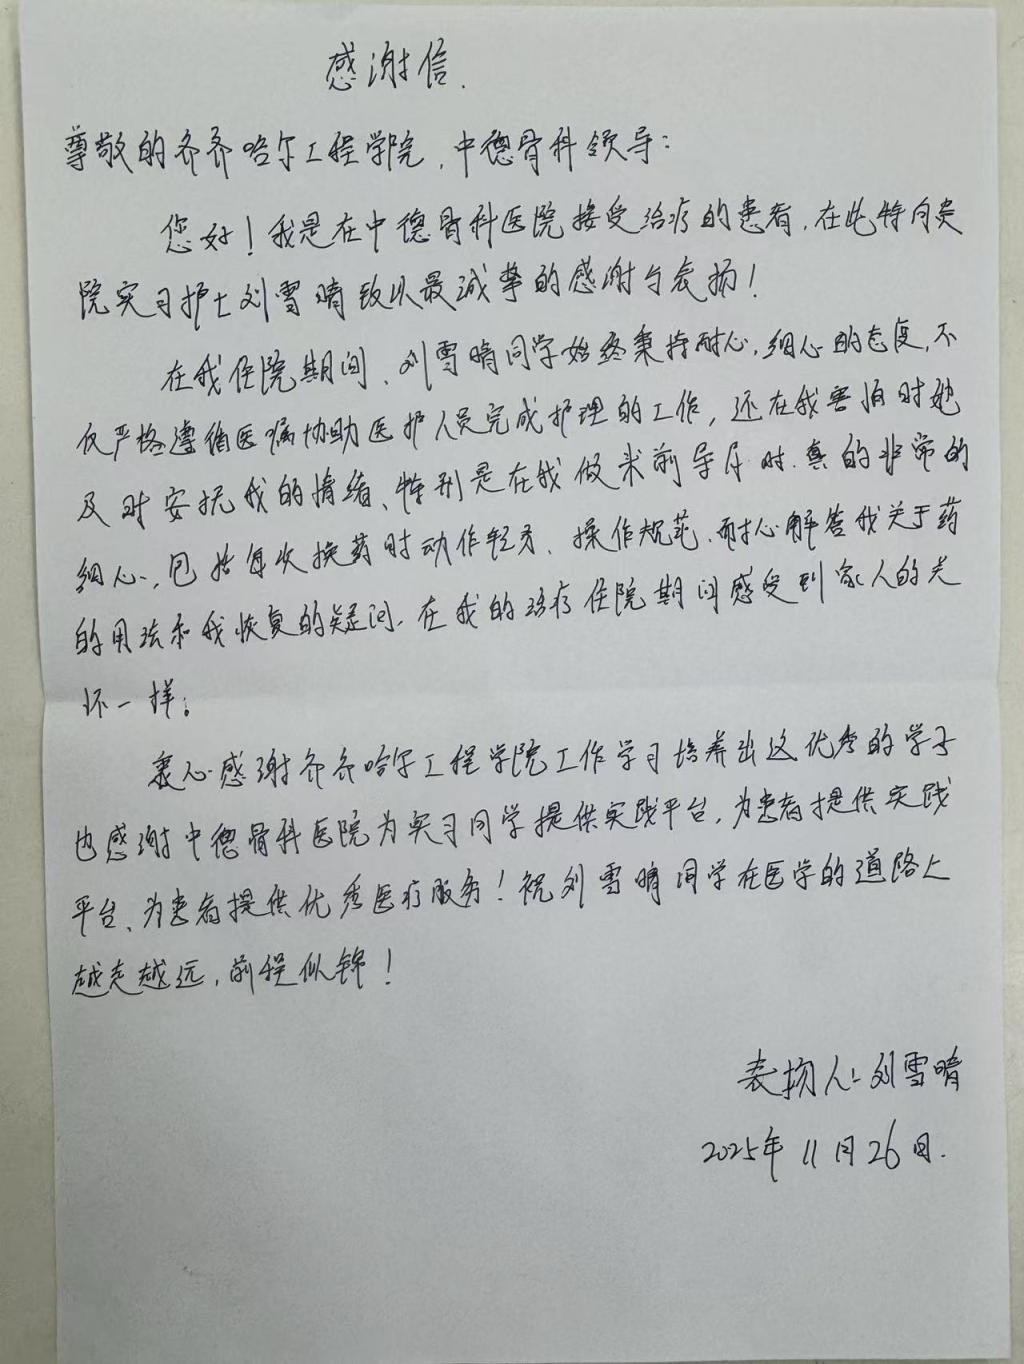 感谢信.
尊敬的齐齐哈尔工程学院,中德骨科领导:
您好!我是在中德骨科医院接受治疗的患者,在此特向贵
院实习护士刘雪晴致以最诚挚的感谢与表扬!
在我住院期间、刘雪晴同学始终秉持耐心,细心的态度,不
仅严格遵循医嘱协助医护人员完成护理的工作,还在我害怕时她
及时安抚我的情绪、特别是在我做术前导尿时.真的非常的
细心,包括每次换药时动作轻柔、操作规范.耐心解答我关于药
的用法和我恢复的疑问.在我的治疗住院期间感受到家人的关
怀一样。
衷心感谢齐齐哈尔工程学院工作学习培养出这优秀的学子
也感谢中德骨科医院为实习同学提供实践平台,为患者提供实践
平台、为患者提供优秀医疗服务!祝刘雪晴同学在医学的道路上
越走越远,前程似锦!
表扬人:刘雪晴
2025年11月26日.